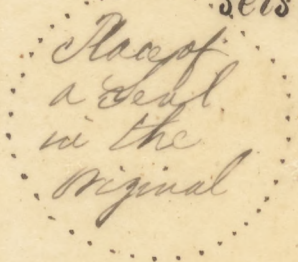 sets
Place of
a Seal
in the
original